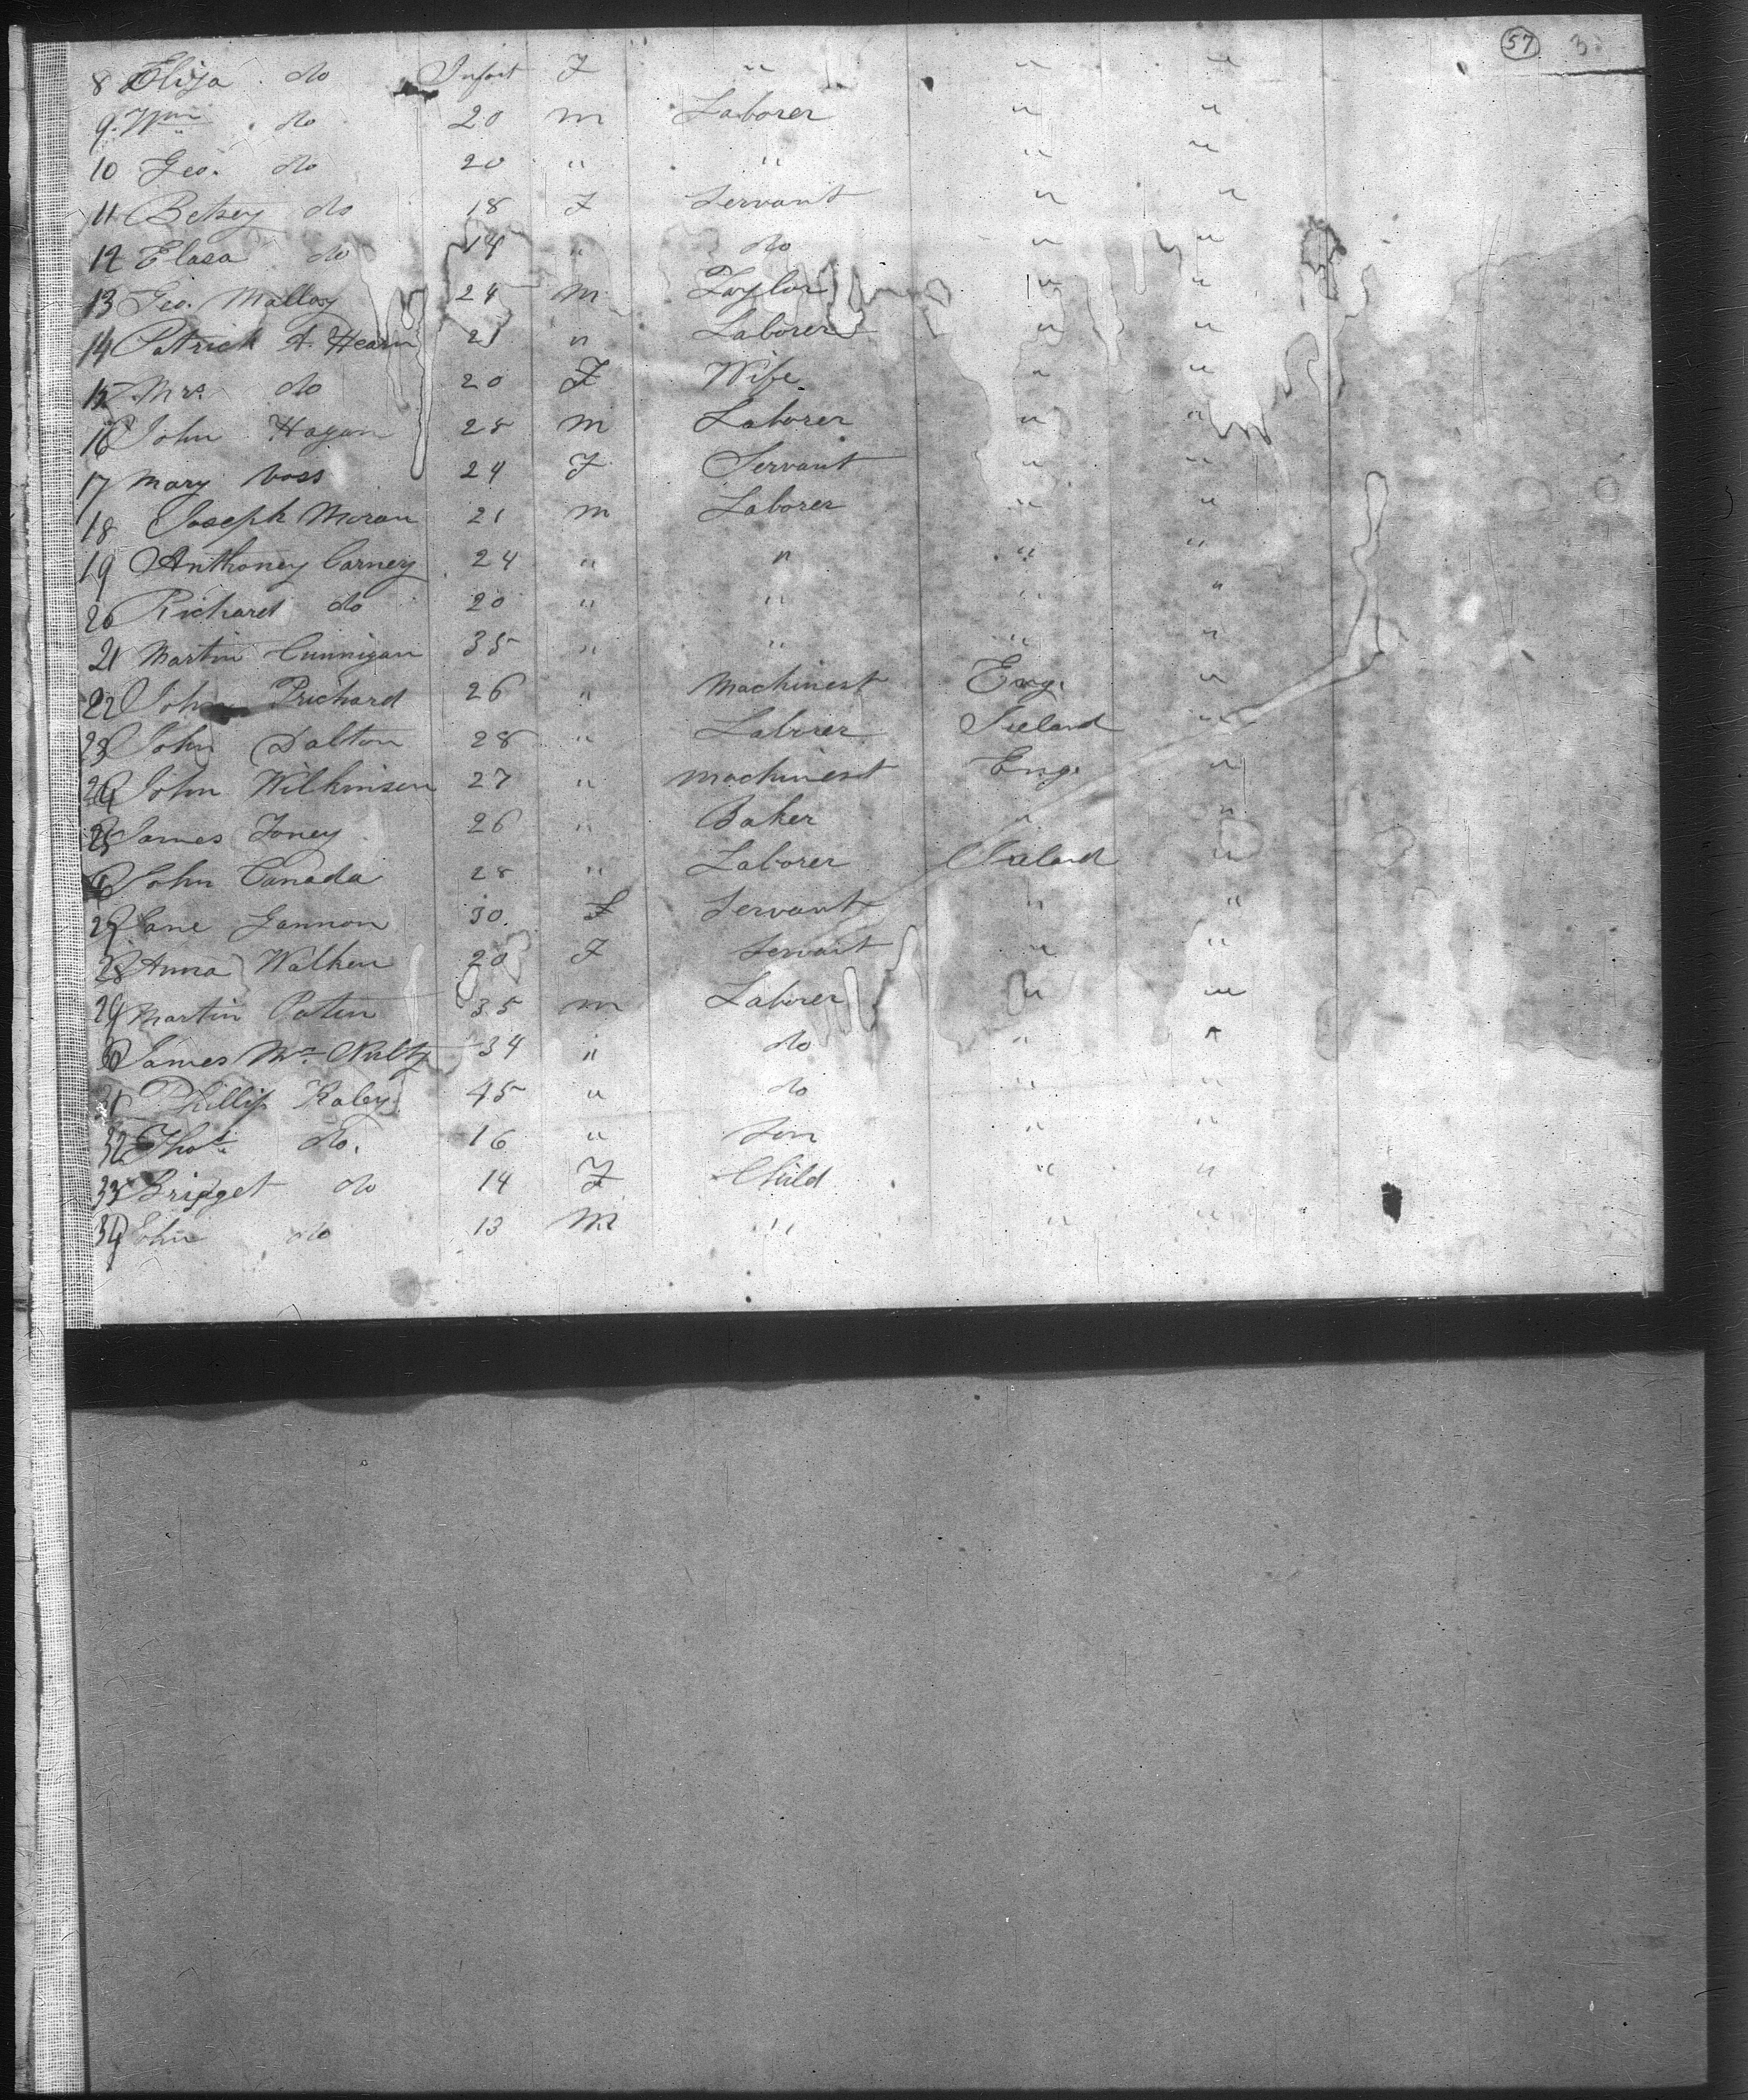 57 3
8 Eliza do Infant F " " "
9 Wm do 20 m Laborer " "
10 Geo. do 20 " " " "
11 Betsey do 18 F Servant " "
12 Elasa do 14 " do " "
13 Geo. Malloy 24 m Taylor " "
14 Patrick A. Hearn 21 " Laborer " "
15 Mrs. do 20 F Wife " "
16 John Hagan 25 m Laborer " "
17 Mary 24 F Servant " "
18 Joseph Moran 21 m Laborer " "
19 Anthoney Carney 24 " " " "
20 Richard do 20 " " " "
21 Martin Cunnigan 35 " " " "
22 John Prichard 26 " Machinest Eng. "
23 John Dalton 28 " Laborer Ireland "
24 John Wilkinson 27 " Machinest Eng. "
25 James Toney 26 " Baker " "
John Canada 28 " Laborer Ireland "
27 Jane Gannon 30 F Servant " "
28 Anna Walken 20 F Servant " "
29 Martin Paten 35 m Laborer " "
30 James Mc Nulty 34 " do " "
31 Phillip Raley 45 " do " "
32 Thos. do. 16 " Son " "
33 Bridget do 14 F Child " "
34 John do 13 M " " "